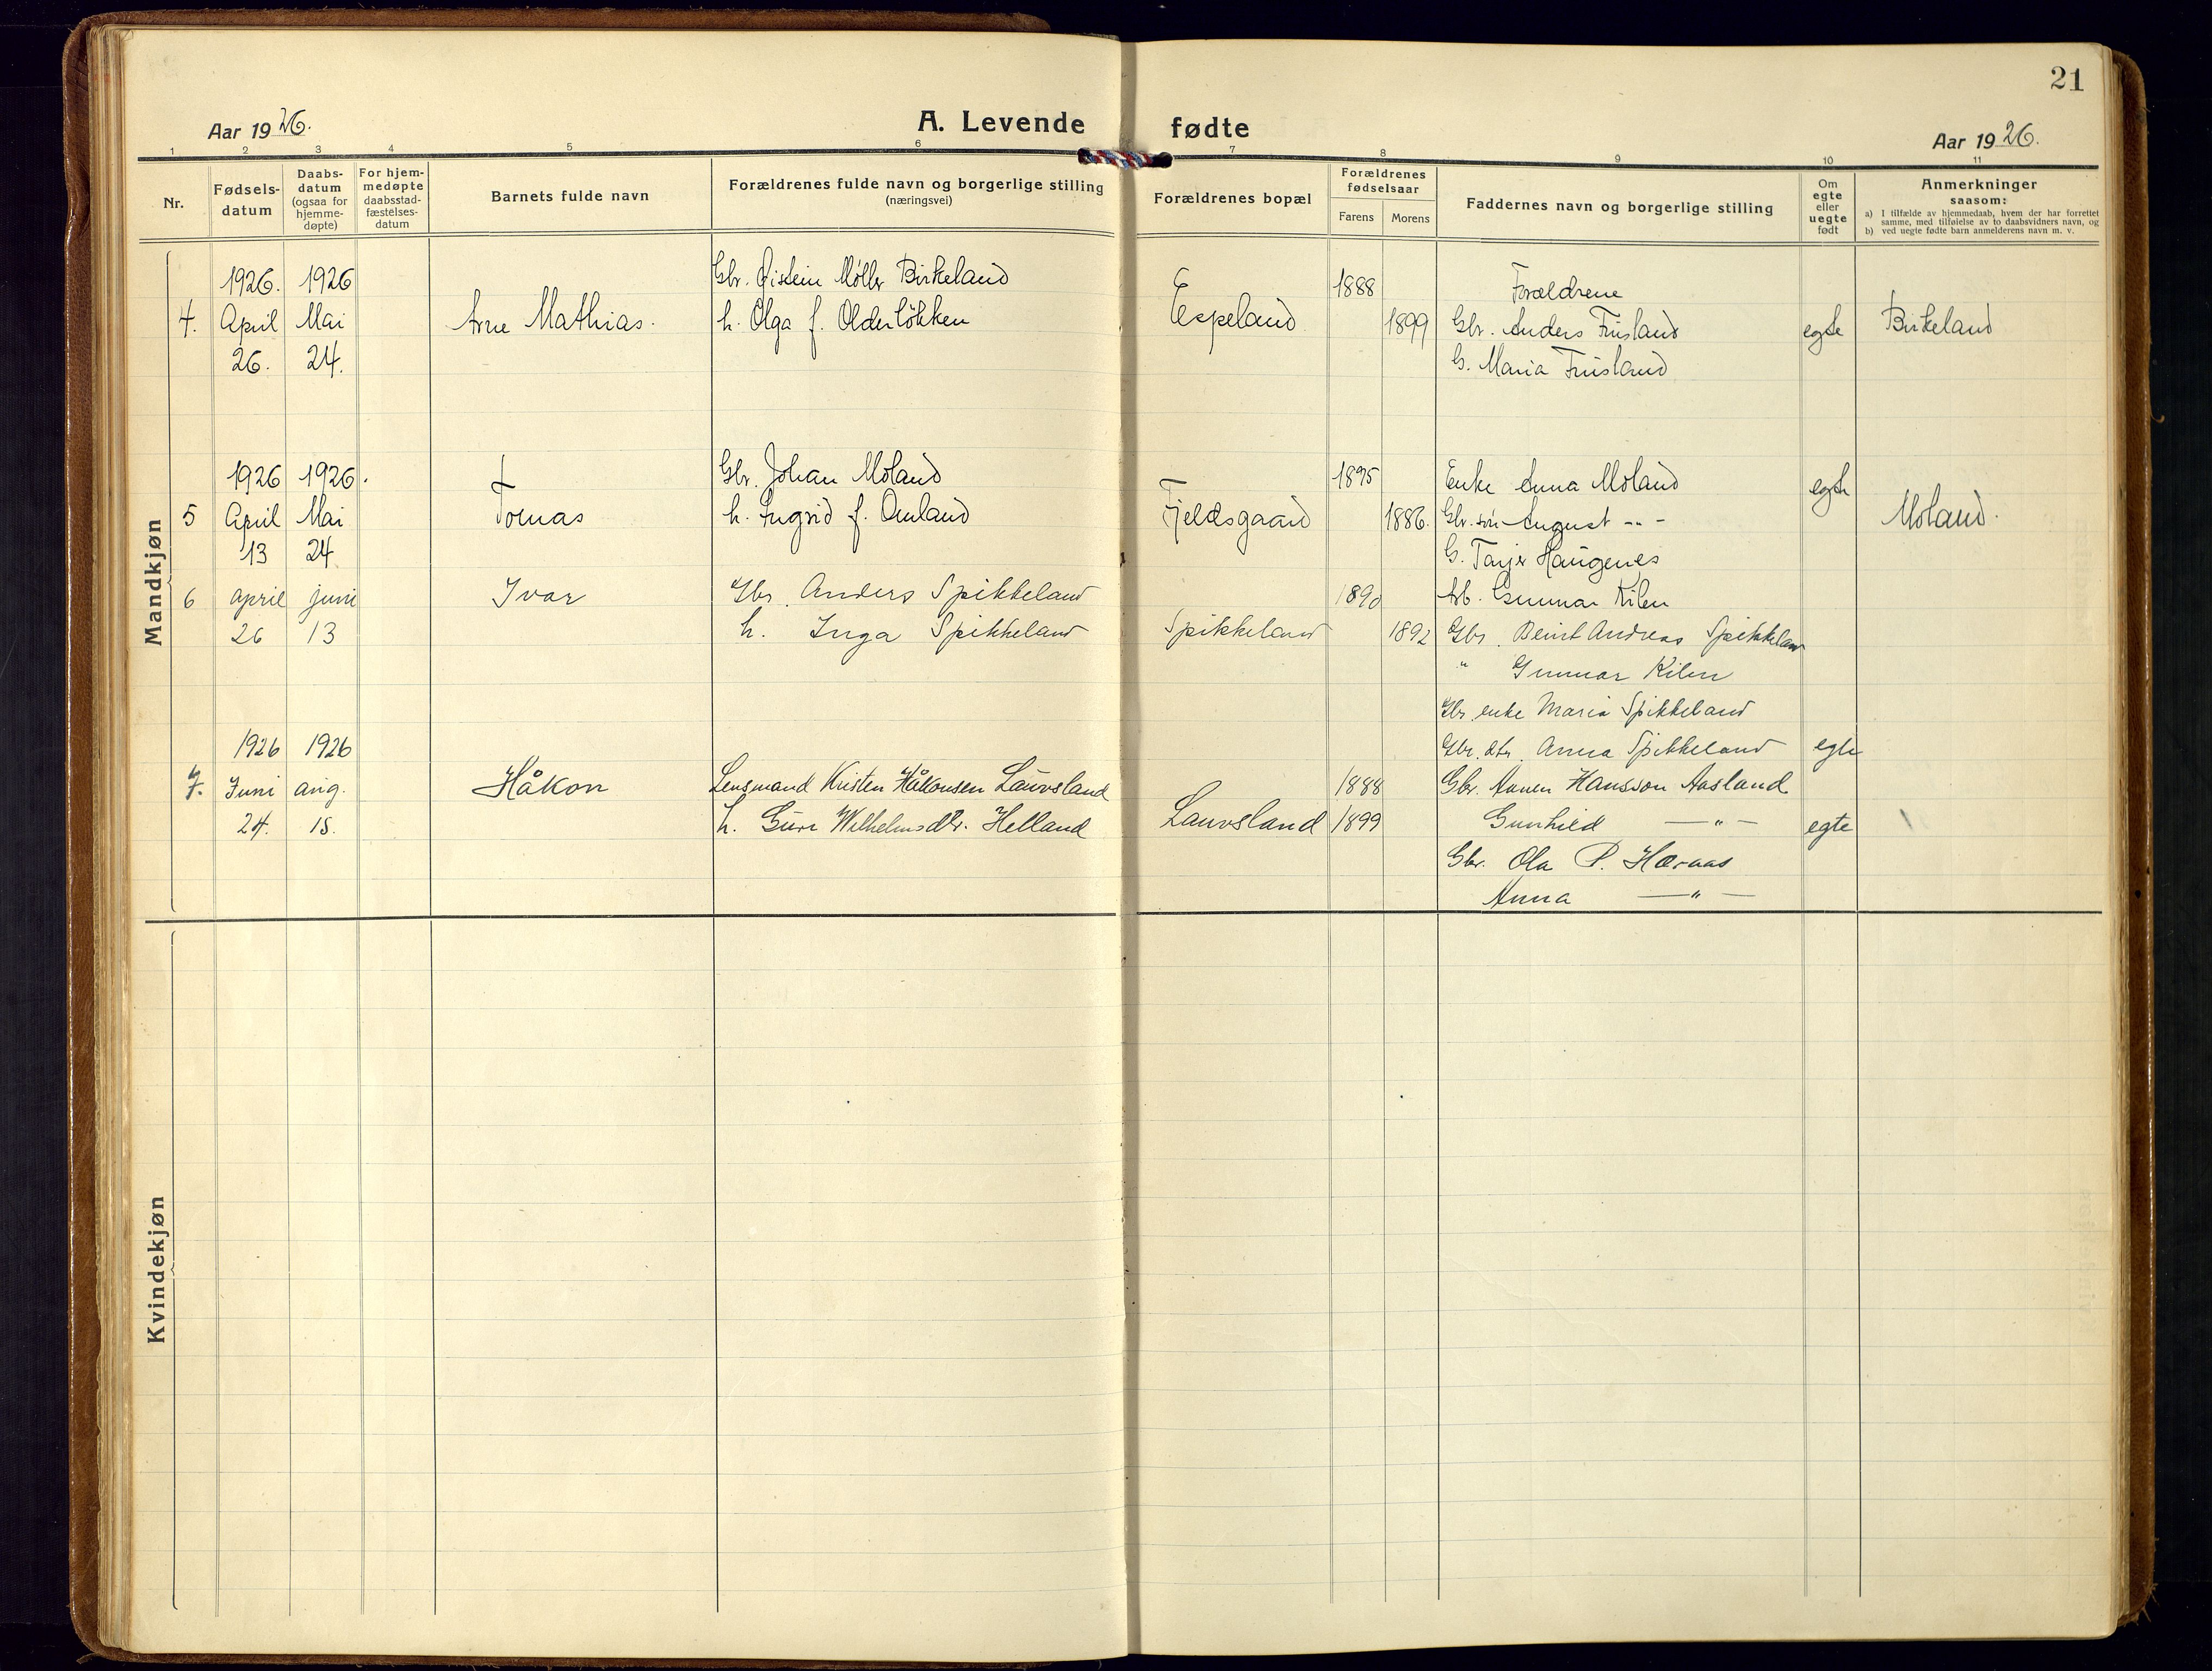 21
Aar 1926.
A. Levende fødte
Aar 1926.
1 2 3 4 5 6 7 8 9 10 11
Nr.
Fødsels-datum
Daabs-datum (ogsaa for hjemme-døpte)
For hjem-medøpte daabsstad-fæstelses-datum
Barnets fulde navn
Forældrenes fulde navn og borgerlige stilling
(næringsvei)
Forældrenes bopæl
Forældrenes fødselsaar
Farens Morens
Faddernes navn og borgerlige stilling
Om egte eller uegte født
Anmerkninger
saasom:
a) I tilfælde av hjemmedaab, hvem der har forrettet samme, med tilføielse av to daabsvidners navn, og
b) ved uegte fødte barn anmelderens navn m. v.
Mandkjøn
1926. 1926 Gbr. Øistein Møller Birkeland 1888 Forældrene
4. April Mai Arne Mathias. h. Olga f. Olderløkken Espeland 1899 Gbr. Anders Frusland egte Birkeland
26. 24. G. Maria Frusland
1926 1926. Gbr. Johan Moland 1895 Enke Anna Moland egte
5 April Mai Tomas h. Ingrid f. Omland Fjeldsgaard 1886. Gbr. søn August -"- Moland.
13 24 G. Tarje Haugenes
6 April juni Ivar Gbr. Anders Spikkeland 1890 Arb. Gunnar Kilen
26 13 h. Inga Spikkeland Spikkeland 1892 Gbr. Beint Andreas Spikkeland
" Gunnar Kilen
Gbr. enke Maria Spikkeland
1926 1926 Gbr. dtr. Anna Spikkeland egte
7. Juni aug. Håkon Lensmand Kristen Håkonsen Lauvsland 1888 Gbr. Aanen Hansson Aasland
24. 15. h. Guri Wilhelmsdtr. Helland Lauvsland 1899 Gunhild -"- egte
Gbr. Ola P. Høraas
Anna -"-
Kvindekjøn